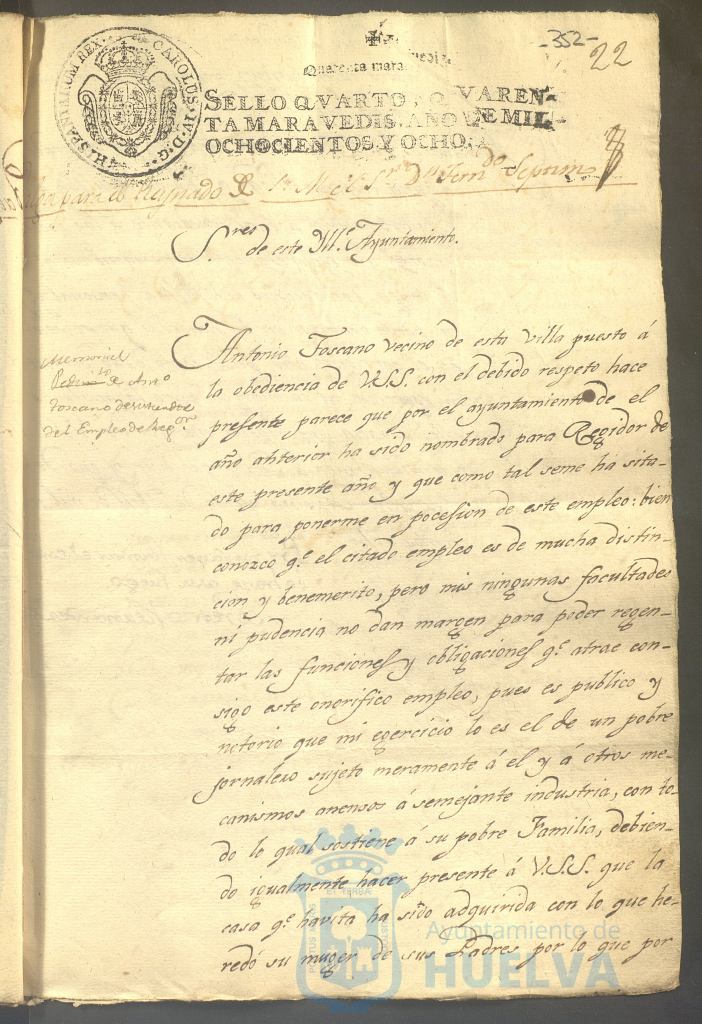 -352-
22
HISPANIARUM REX. CAROLUS. IV. D. G.
Quarenta mara
SELLO QVARTO, QVAREN-
TA MARAVEDIS, AÑO DE MIL
OCHOCIENTOS Y OCHO.
Valga para el Reynado de S. M. el Sr. Dn. Fern.do Septimo
S.res de este Ill.e Ayuntamiento.
Memorial
de Ant.o
Toscano
del Empleo de Reg.or
Antonio Toscano vecino de esta Villa puesto á
la obediencia de V.S.S. con el debido respeto hace
presente parece que por el ayuntamiento de el
año ahterior ha sido nombrado para Regidor de
este presente año y que como tal seme ha sita-
do para ponerme en pocesion de este empleo: bien
conozco q.e el citado empleo es de mucha distin-
cion y benemerito, pero mis ningunas facultades
ni pudencia no dan margen para poder regen-
tar las funciones y obligaciones q.e atrae con-
sigo este onorifico empleo, pues es publico y
notorio que mi egercicio lo es el de un pobre
jornalero sujeto meramente á el y á otros me-
canismos anensos á semejante industria, con to-
do lo qual sostiene á su pobre Familia, debien-
do igualmente hacer presente á V.S.S. que la
casa q.e havita ha sido adquirida con lo que he-
redó su muger de sus Padres por lo que por
Ayuntamiento de
HUELVA